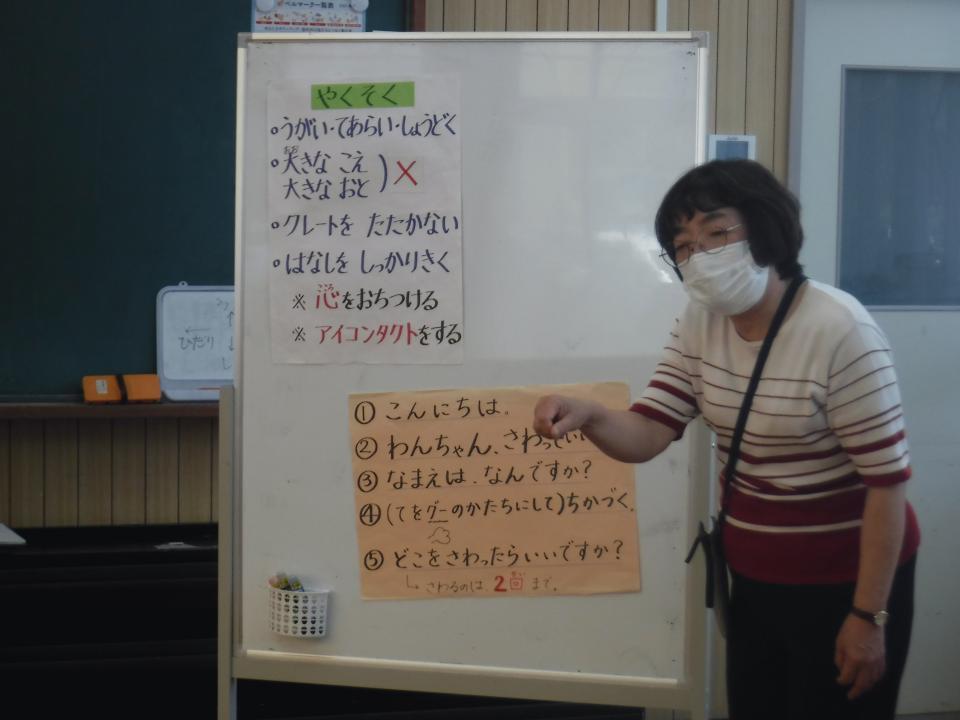 ベルマーク一覧表
やくそく
・うがい・てあらい・しょうどく
・大きな こえ
おお
大きな おと ) ×
・クレートを たたかない
・はなしを しっかりきく
こころ
※ 心をおちつける
※ アイコンタクトをする
ひだり
① こんにちは。
② わんちゃん、さわって
③ なまえは、なんですか?
④ (てをグーのかたちにして)ちかづく。
⑤ どこをさわったらいいですか?
さわるのは 2回 まで。
かい